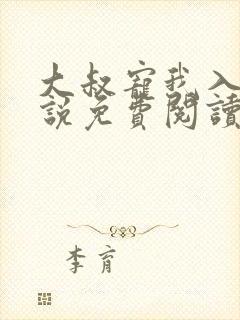 大叔寵我入
說免費閱讀
李育